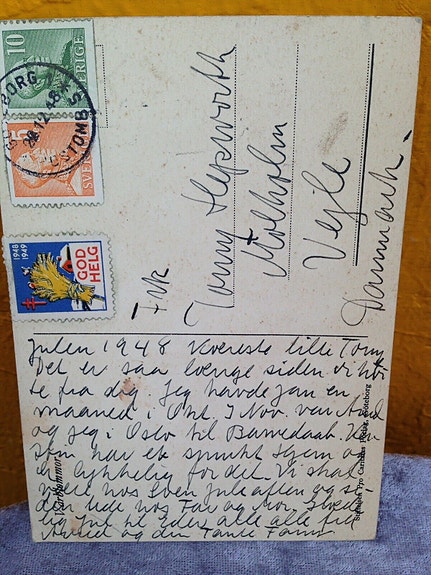 10
SVERIGE
5
SVERIGE
BORG
28.12.48
TOMB
1948
1949
GOD
HELG
Frk.
Tonny Hepworth
Mølholm
Vejle
Danmark.
Julen 1948 Kæreste lille Tonny
Det er saa længe siden vi hør
te fra dig. Jeg havde Jan en
maaned i Okt. I Nov. var
og jeg i Oslo til Barnedaab.
har et smukt hjem og
er lykkelig for det. Vi skal
være hos Sven Juleaften og
ude hos Far og Mor,
lig Jul til eder alle alle fra
og din Tante
Stiftelsen Pro Caritate
Göteborg